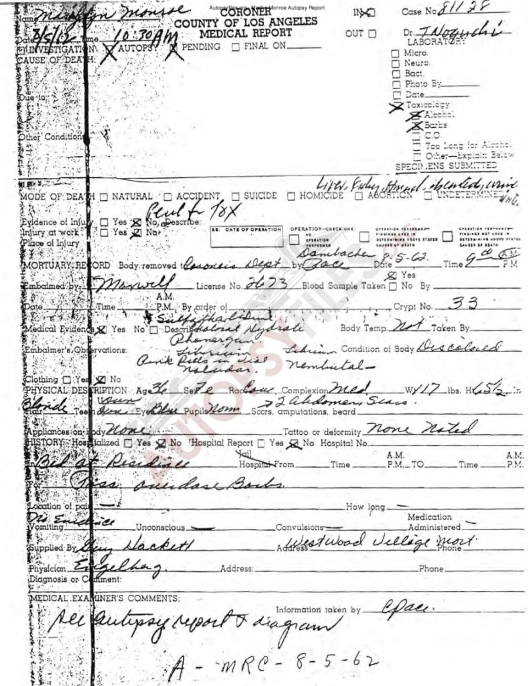 Autopsyfiles.org - Marilyn Monroe Autopsy Report
CORONER IN ☒ Case No. 81128
Name Marilyn Monroe COUNTY OF LOS ANGELES
MEDICAL REPORT OUT ☐ Dr. T Noguchi
Date 8/5/62 10:30 AM LABORATORY
INVESTIGATION ☒ AUTOPSY ☒ PENDING ☐ FINAL ON
CAUSE OF DEATH:
☐ Micro.
☐ Neuro.
☐ Bact.
☐ Photo By
☐ Date
Due to:
☒ Toxicology
☒ Alcohol
☒ Barbs
☐ C.O.
Other Conditions
☐ Too Long for Alcohol
☐ Other—Explain Below
SPECIMENS SUBMITTED
Liver, Kidney, Stomach, urine
MODE OF DEATH ☐ NATURAL ☐ ACCIDENT ☐ SUICIDE ☐ HOMICIDE ☐ ABORTION ☐ UNDETERMINED
Evidence of Injury ☐ Yes ☒ No, Describe:
Injury at work ☐ Yes ☒ No
Place of Injury
DATE OF OPERATION OPERATION-CHECK ONE:
Dambacher
MORTUARY RECORD Body removed Coroners Dept. by Pace Date 8-5-62 Time 9 00 A.M. P.M.
☒ Yes
Embalmed by Maxwell License No. 2673 Blood Sample Taken ☐ No By
A.M.
Date Time P.M. By order of Crypt No. 33
Medical Evidence ☒ Yes No ☐ Describe Chloral Hydrate Body Temp. Not Taken By
Phenergan
Embalmer's Observations: Librium Condition of Body Discolored
Pink Pills in Vial
Noludar. Nembutal
Clothing ☐ Yes ☒ No
PHYSICAL DESCRIPTION Age 36 Sex Fe Race Cauc Complexion Med Wt. 117 lbs. Ht. 65½ in.
Blonde
Hair Teeth Eyes Blue Pupils Nom Scars, amputations, beard 2 Abdomen Scars
Appliances on body None Tattoo or deformity None Noted
HISTORY: Hospitalized ☐ Yes ☒ No Hospital Report ☐ Yes ☒ No Hospital No.
Jail A.M. A.M.
In Bed at Residence Hospital From Time P.M. TO Time P.M.
For Poss overdose Barbs
Location of pain How long
No Evidence Medication
Vomiting Unconscious Convulsions Administered
Supplied By Guy Hackett Address Westwood Village Mort. Phone
Physician Engelberg Address: Phone
Diagnosis or Comment:
MEDICAL EXAMINER'S COMMENTS:
Information taken by C Pace.
See autopsy report & diagram
A - MRC - 8-5-62
AUTOPSYFILES